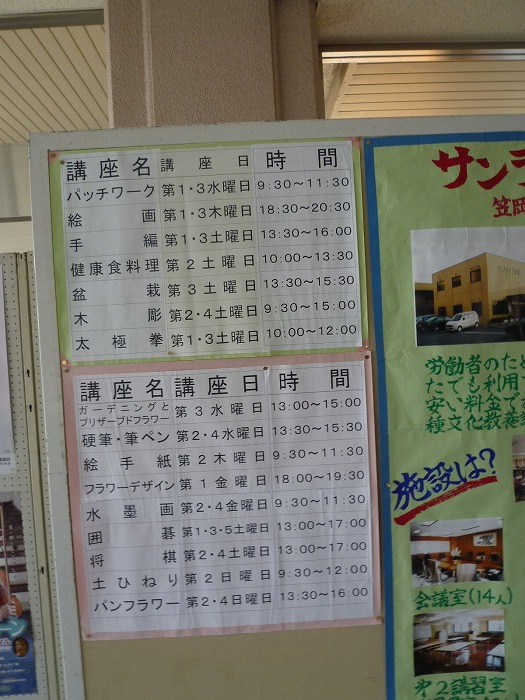 講座名 講座日 時間
パッチワーク 第1・3水曜日 9:30～11:30
絵画 第1・3木曜日 18:30～20:30
手編 第1・3土曜日 13:30～16:00
健康食料理 第2土曜日 10:00～13:30
盆栽 第3土曜日 13:30～15:30
木彫 第2・4土曜日 9:30～15:00
太極拳 第1・3土曜日 10:00～12:00
講座名 講座日 時間
ガーデニングと
プリザーブドフラワー 第3水曜日 13:00～15:00
硬筆・筆ペン 第2・4水曜日 13:30～15:30
絵手紙 第2木曜日 9:30～11:30
フラワーデザイン 第1金曜日 18:00～19:30
水墨画 第2・4金曜日 9:30～11:30
囲碁 第1・3・5土曜日 13:00～17:00
将棋 第2・4土曜日 13:00～17:00
土ひねり 第2日曜日 9:30～12:00
パンフラワー 第2・4日曜日 13:30～16:00
サン
笠岡
労働者のた
たでも利用
安い料金で
種文化教養
施設は?
会議室(14人)
第2講習室